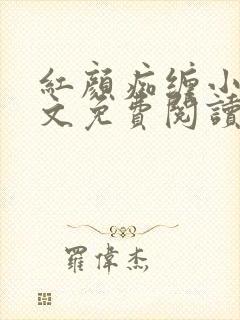 紅顔痴缠小
文免費閱讀
羅偉杰